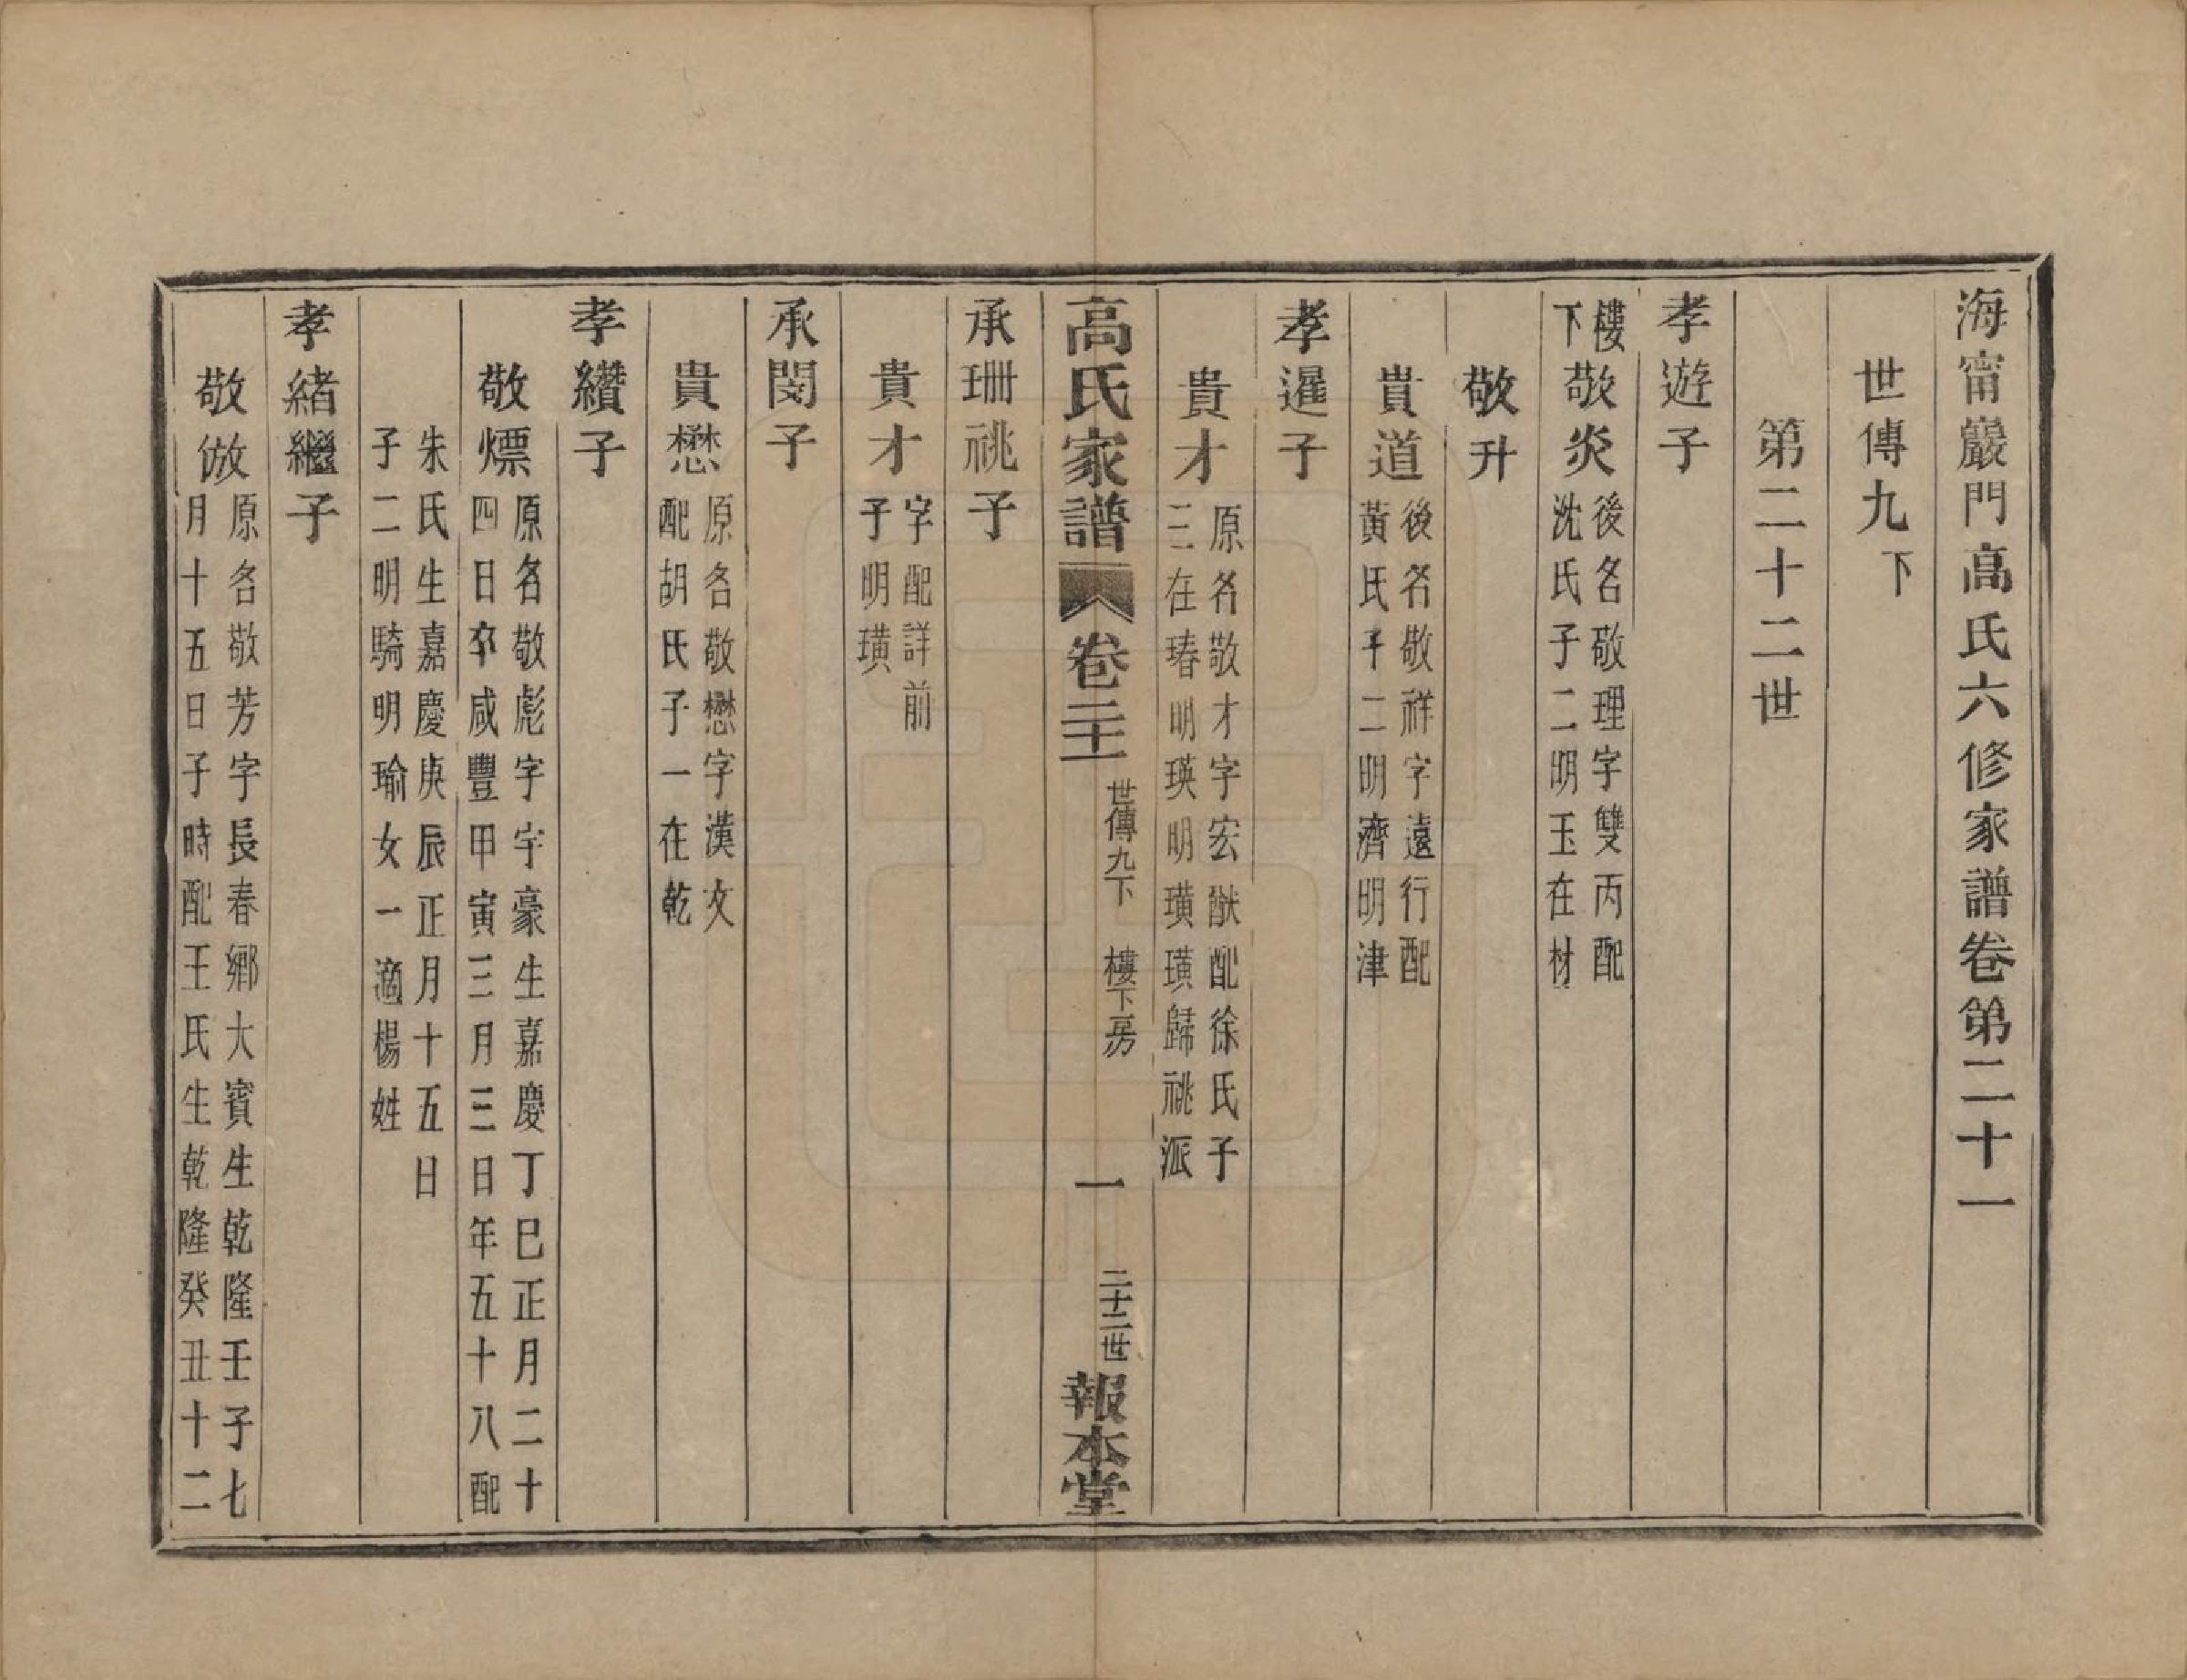 海甯巖門高氏六修家譜卷第二十一
世傳九下
第二十二世
孝遊子
樓下
敬炎
後名敬理字雙丙配
沈氏子二明玉在材
敬升
貴道
後名敬祥字遠行配
黃氏子二明濟明津
孝暹子
貴才
原名敬才字宏猷配徐氏子
三在瑃明瑛明璜璜歸祧派
高氏家譜
卷二十一
世傳九下
樓下房
一
二十二世
報本堂
承珊祧子
貴才
字配詳前
子明璜
承閔子
貴懋
原名敬懋字漢文
配胡氏子一在乾
孝纘子
敬熛
原名敬彪字字豪生嘉慶丁巳正月二十
四日卒咸豐甲寅三月三日年五十八配
朱氏生嘉慶庚辰正月十五日
子二明騎明瑜女一適楊姓
孝緒繼子
敬倣
原名敬芳字長春鄉大賓生乾隆壬子七
月十五日子時配王氏生乾隆癸丑十二